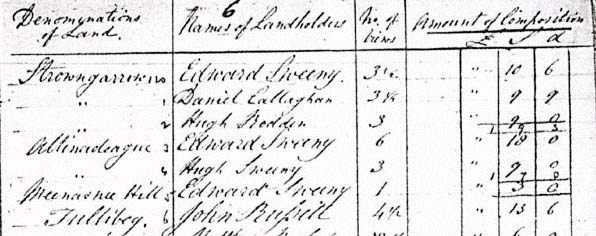 6
Denomynations of Land. Names of Landholders No. of Cows Amount of Composition
£ S d
Strowngarrow Edward Sweeny. 3½ " 10 6
" 1 Daniel Callaghan 3¼ " 9 9
" 2 Hugh Bodden 3 " 9 0
1 9 3
Altinadeague 3 Edward Sweeny 6 " 18 0
" 4 Hugh Sweeny 3 " 9 0
1 7 0
Meenasnee Hill 5 Edward Sweeny 1 " 3 0
Tullibeg. 6 John Russell 4½ " 13 6